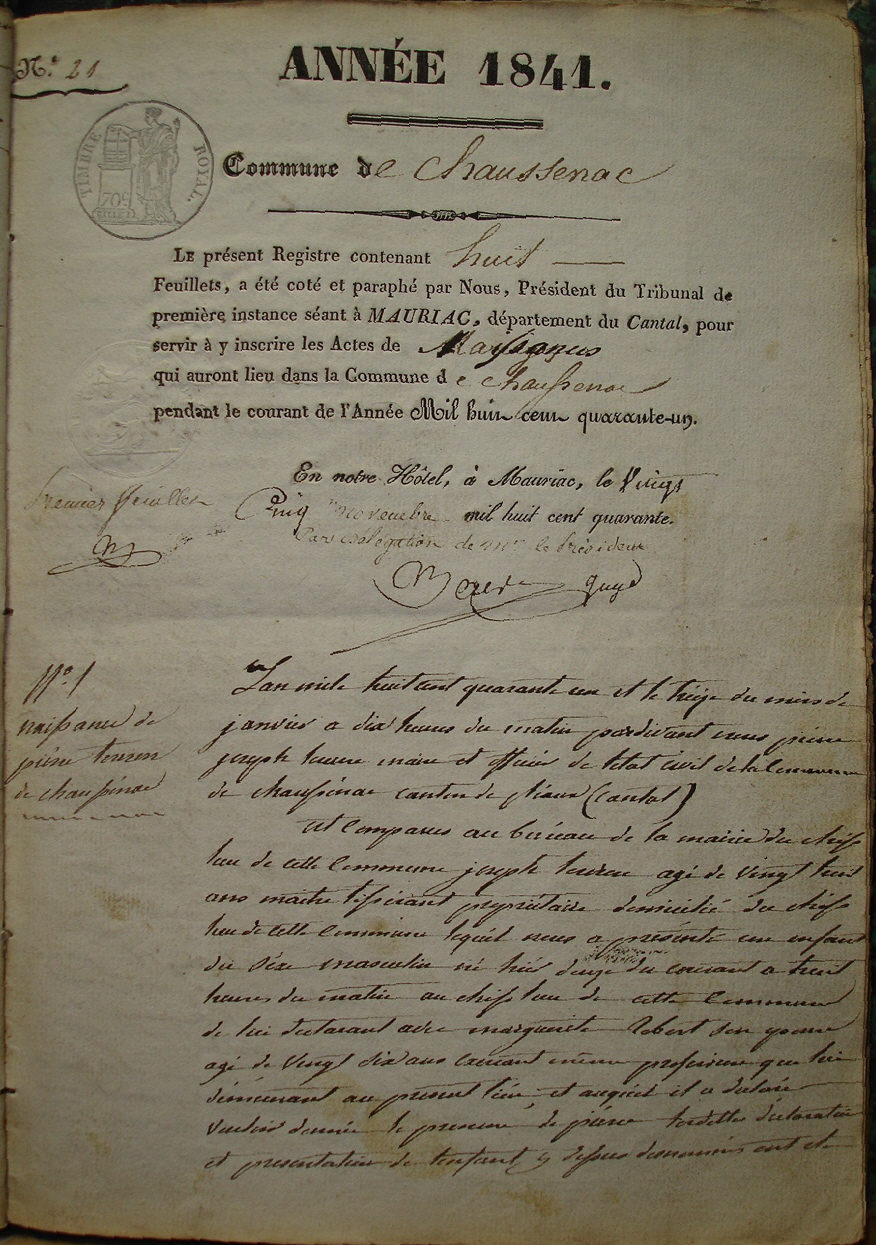 N.° 21
ANNÉE 1841.
TIMBRE ROYAL.
70c
Commune de Chaussenac
LE présent Registre contenant huit
Feuillets, a été coté et paraphé par Nous, Président du Tribunal de
première instance séant à MAURIAC, département du Cantal, pour
servir à y inscrire les Actes de
qui auront lieu dans la Commune de Chaussenac
pendant le courant de l'Année Mil huit cent quarante-un.
En notre Hôtel, à Mauriac, le Vingt
Cinq novembre mil huit cent quarante.
Premier feuillet
Par délégation de Mr le Président
N° 1
naissance de
pierre
de chaussenac
L'an mile huit cent quarante un et le treize du mois de
janvier a dix heures du matin pardevant nous pierre
joseph maire et officier de l'etat civil de la Commune
de chaussenac canton de pleaux (Cantal)
est comparus au bureau de la mairie du chef
lieu de cette Commune joseph agé de vingt huit
ans maitre tisserant propriétaire domicilié du chef
lieu de cette Commune lequel nous a présenté un enfant
du séxe masculin né hier douze du courant a huit
heures du matin au chef lieu de cette Commune
de lui declarant et de marguerite Robert son epouse
agé de vingt six ans exerçant même profession que lui
demeurant au present lieu et auquel il a declaré
vouloir donner le prenom de pierre declaration
et presentation de l'enfant cy dessus denommés ont eté